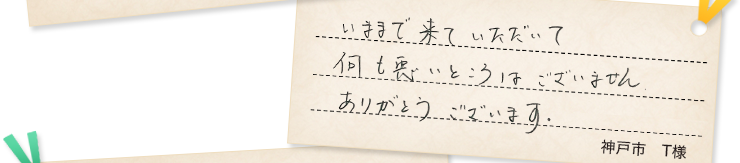 いままで来ていただいて
何も悪いところはございません.
ありがとうございます.
神戸市 T様